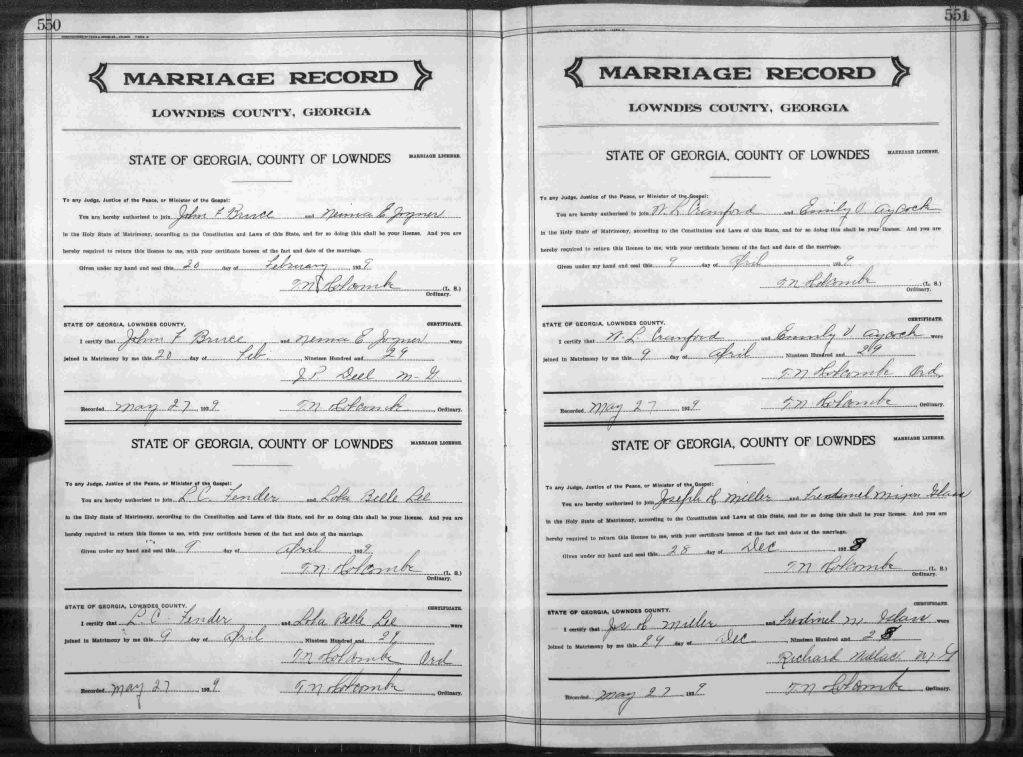 550
MARRIAGE RECORD
LOWNDES COUNTY, GEORGIA
STATE OF GEORGIA, COUNTY OF LOWNDES MARRIAGE LICENSE.
To any Judge, Justice of the Peace, or Minister of the Gospel:
You are hereby authorized to join John F Bruce and E. Joyner
in the Holy State of Matrimony, according to the Constitution and Laws of this State, and for so doing this shall be your license. And you are
hereby required to return this license to me, with your certificate hereon of the fact and date of the marriage.
Given under my hand and seal this 20 day of February 1929
T.N. Holcomb (L. S.)
Ordinary.
STATE OF GEORGIA, LOWNDES COUNTY. CERTIFICATE.
I certify that John F Bruce and E Joyner were
joined in Matrimony by me this 20 day of Feb. Nineteen Hundred and 29
J.P. Deel M-G
Recorded May 27 1929 T.N. Holcomb Ordinary.
STATE OF GEORGIA, COUNTY OF LOWNDES MARRIAGE LICENSE.
To any Judge, Justice of the Peace, or Minister of the Gospel:
You are hereby authorized to join L.C. Fender and Lola Belle Lee
in the Holy State of Matrimony, according to the Constitution and Laws of this State, and for so doing this shall be your license. And you are
hereby required to return this license to me, with your certificate hereon of the fact and date of the marriage.
Given under my hand and seal this 9 day of April 1929
T.N. Holcomb (L. S.)
Ordinary.
STATE OF GEORGIA, LOWNDES COUNTY. CERTIFICATE.
I certify that L.C. Fender and Lola Belle Lee were
joined in Matrimony by me this 9 day of April Nineteen Hundred and 29
T.N. Holcomb Ord
Recorded May 27 1929 T.N. Holcomb Ordinary.
551
MARRIAGE RECORD
LOWNDES COUNTY, GEORGIA
STATE OF GEORGIA, COUNTY OF LOWNDES MARRIAGE LICENSE.
To any Judge, Justice of the Peace, or Minister of the Gospel:
You are hereby authorized to join W.L. Crumford and Emily V Aycock
in the Holy State of Matrimony, according to the Constitution and Laws of this State, and for so doing this shall be your license. And you are
hereby required to return this license to me, with your certificate hereon of the fact and date of the marriage.
Given under my hand and seal this 9 day of April 1929
T.N. Holcomb (L. S.)
Ordinary.
STATE OF GEORGIA, LOWNDES COUNTY. CERTIFICATE.
I certify that W L Crumford and Emily V Aycock were
joined in Matrimony by me this 9 day of April Nineteen Hundred and 29
T.N. Holcomb Ord,
Recorded May 27 1929 T.N. Holcomb Ordinary.
STATE OF GEORGIA, COUNTY OF LOWNDES MARRIAGE LICENSE.
To any Judge, Justice of the Peace, or Minister of the Gospel:
You are hereby authorized to join Joseph H. Miller and Glass
in the Holy State of Matrimony, according to the Constitution and Laws of this State, and for so doing this shall be your license. And you are
hereby required to return this license to me, with your certificate hereon of the fact and date of the marriage.
Given under my hand and seal this 28 day of Dec 1928
T.N. Holcomb (L. S.)
Ordinary.
STATE OF GEORGIA, LOWNDES COUNTY. CERTIFICATE.
I certify that Jos H. Miller and M. Glass were
joined in Matrimony by me this 29 day of Dec Nineteen Hundred and 28
Richard M.G
Recorded May 27 1929 T.N. Holcomb Ordinary.